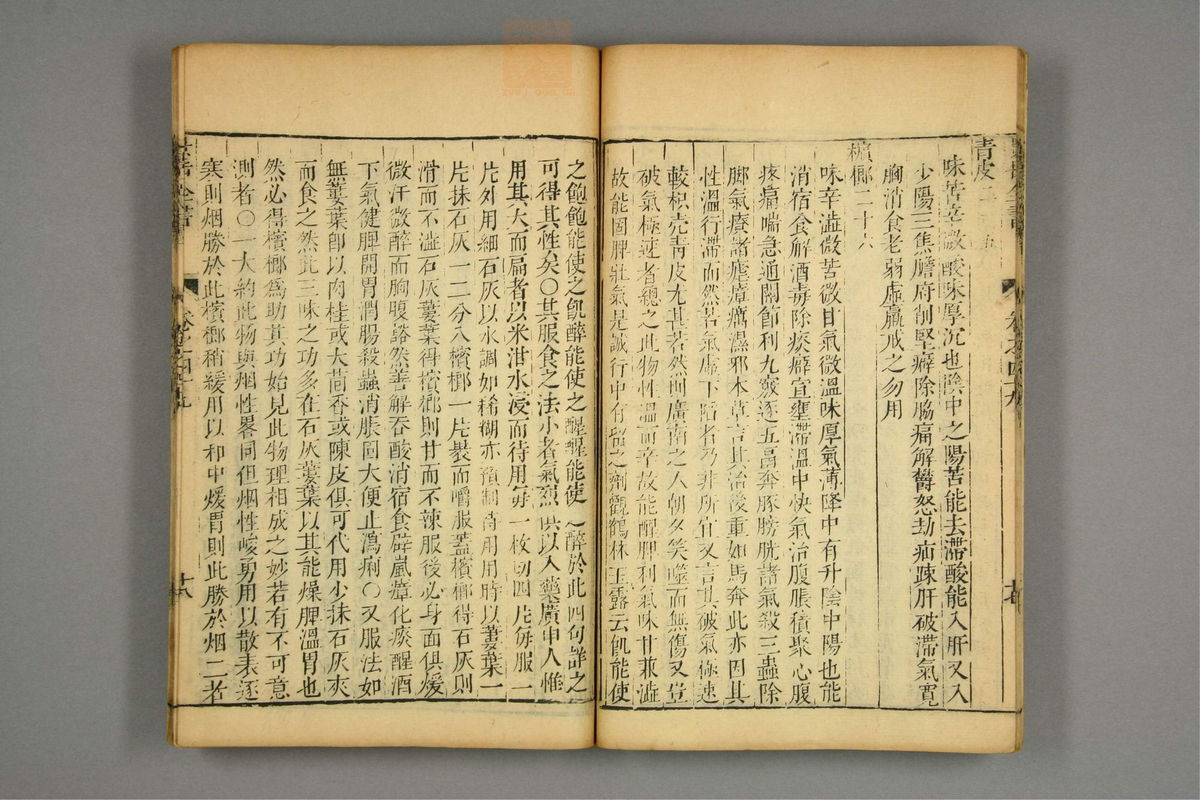 青皮二
味苦辛微酸味厚沉也陰中之陽苦能去滯酸能入肝又入
少陽三焦膽府削堅癖除脇痛解鬱怒劫疝疎肝破滯氣寬
胸消食老弱虛羸戒之勿用
檳榔二十六
味辛澁微苦微甘氣微溫味厚氣薄降中有升陰中陽也能
消宿食解酒毒除痰癖宣壅滯溫中快氣治腹脹積聚心腹
疼痛喘急通關節利九竅逐五鬲奔豚膀胱諸氣殺三蟲除
脚氣療諸瘧瘴癘濕邪本草言其治後重如馬奔此亦因其
性溫行滯而然若氣虛下陷者乃非所宜又言其破氣極速
較枳壳青皮尤甚若然則廣南之人朝夕笑噬而無傷又豈
破氣極速者總之此物性溫而辛故能醒脾利氣味甘兼澁
故能固脾壯氣是誠行中有留之劑觀鶴林玉露云飢能使
之飽飽能使之飢醉能使之醒醒能使之醉於此四句詳之
可得其性矣〇其服食之法小者氣烈俱以入藥廣中人惟
用其大而扁者以米泔水浸而待用每一枚切四片每服一
片外用細石灰以水調如稀糊亦預制待用用時以蔞葉一
片抹石灰一二分入檳榔一片裹而嚼服蓋檳榔得石灰則
滑而不澁石灰蔞葉得檳榔則甘而不辣服後必身面俱煖
微汗微醉而胸腹豁然善解吞酸消宿食辟嵐瘴化痰醒酒
下氣健脾開胃潤腸殺蟲消脹固大便止瀉痢〇又服法如
無蔞葉卽以肉桂或大茴香或陳皮俱可代用少抹石灰夾
而食之然此三味之功多在石灰蔞葉以其能燥脾溫胃也
然必得檳榔爲助其功始見此物理相成之妙若有不可意
測者〇一大約此物與烟性畧同但烟性峻勇用以散表逐
寒則烟勝於此檳榔稍緩用以和中煖胃則此勝於烟二者
全書
卷之四十九
十八